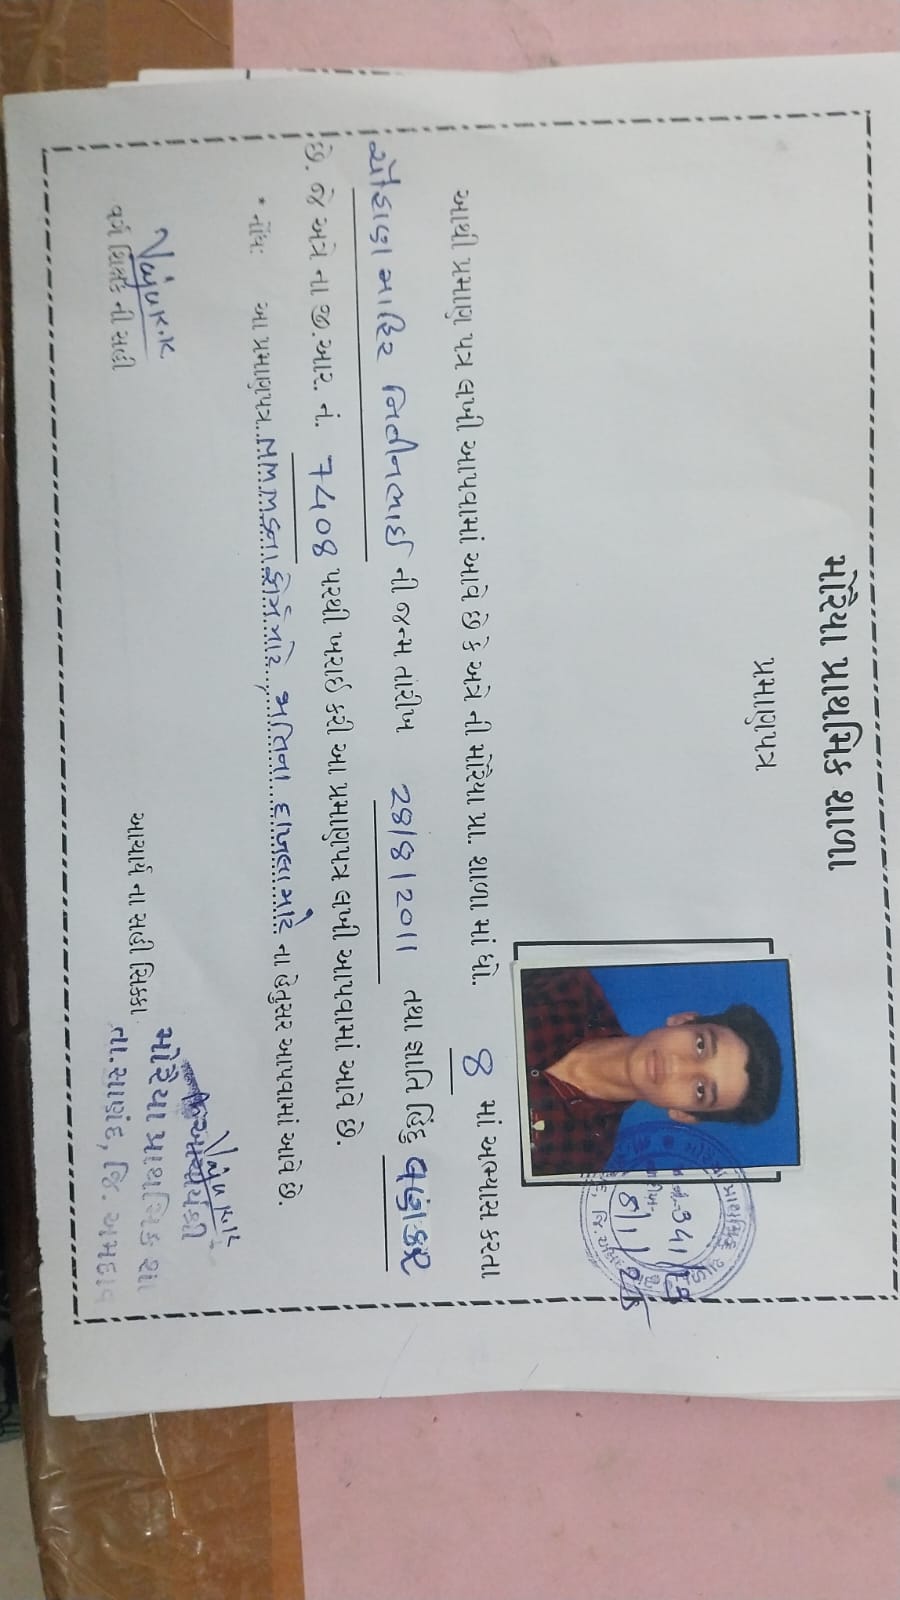 મોરૈયા પ્રાથમિક શાળા
પ્રમાણપત્ર
આથી પ્રમાણ પત્ર લખી આપવામાં આવે છે કે અત્રે ની મોરૈયા પ્રા. શાળા માં ધો. 8 માં અભ્યાસ કરતા
ચૌહાણ માહિર નિતીનભાઈ ની જન્મ તારીખ 28/8/2011 તથા જ્ઞાતિ હિંદુ વણકર
છે. જે અત્રે ના જી.આર. નં. 7408 પરથી ખરાઈ કરી આ પ્રમાણપત્ર લખી આપવામાં આવે છે.
* નોંધ: આ પ્રમાણપત્ર જાતિના દાખલા માટે ના હેતુસર આપવામાં આવે છે.
વર્ગ શિક્ષક ની સહી
આચાર્ય ના સહી સિક્કા
આચાર્યશ્રી
મોરૈયા પ્રાથમિક શા
તા.સાણંદ, જિ. અમદાવ